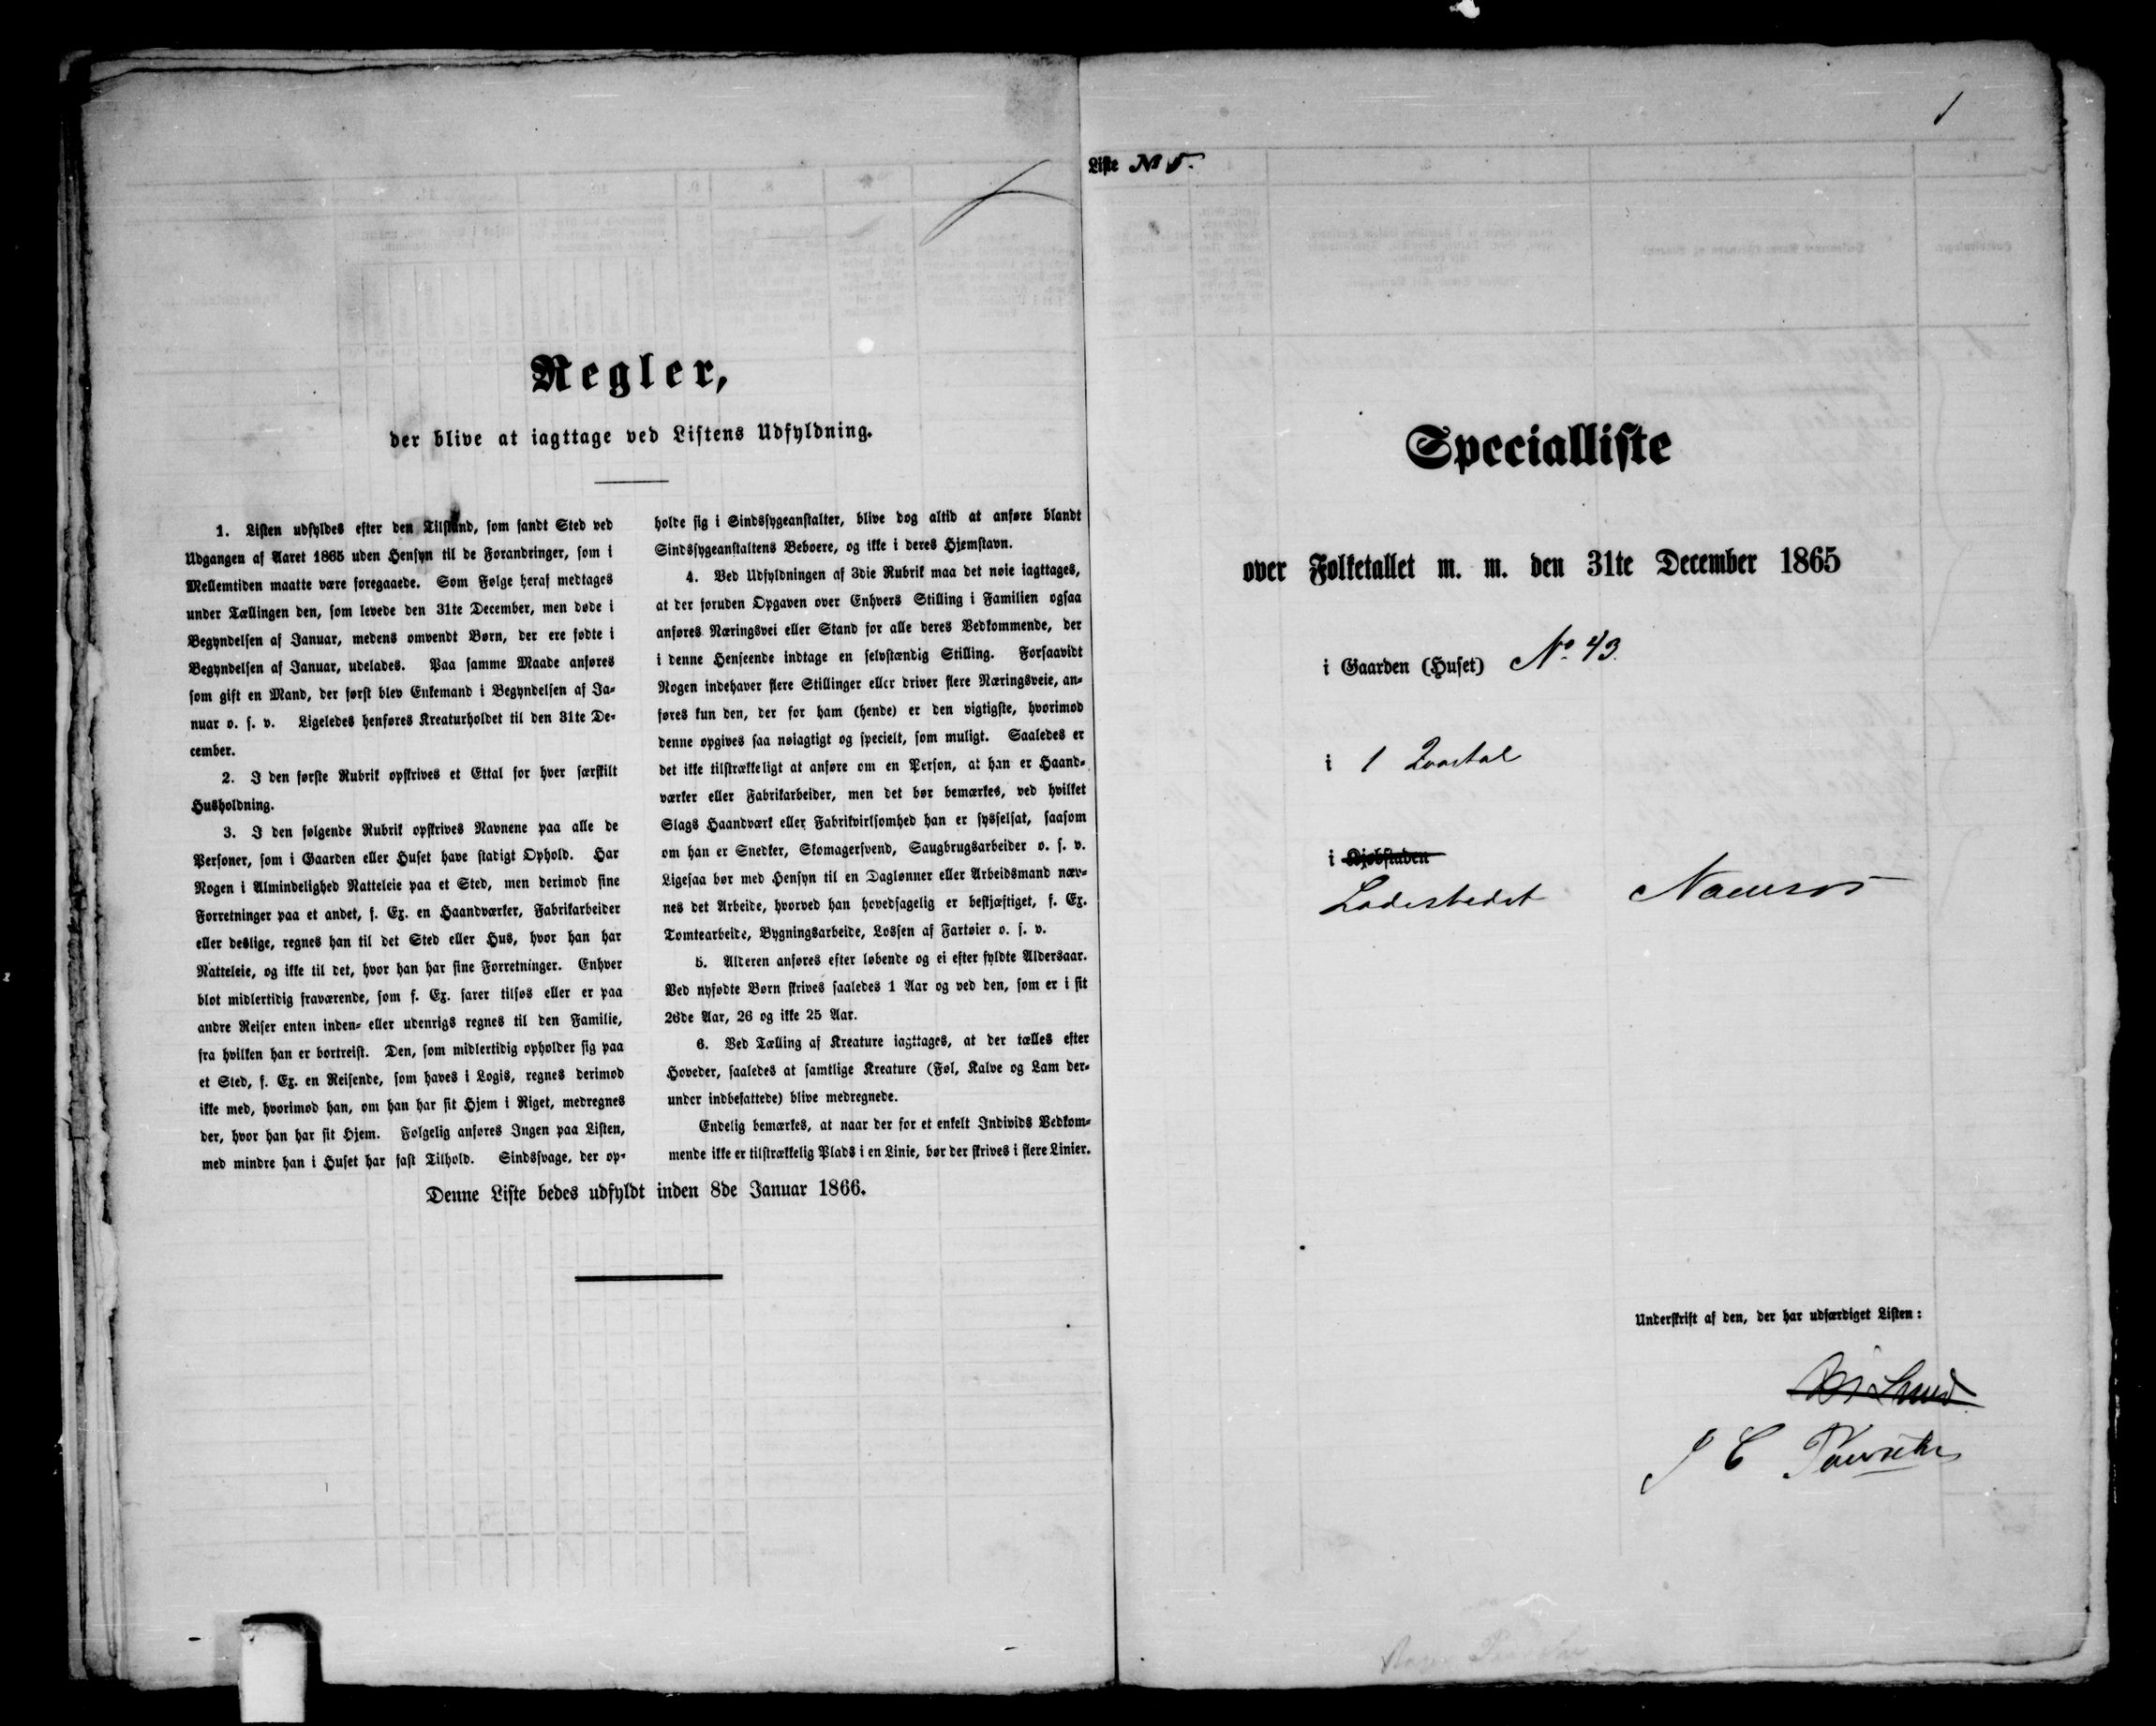 Regler,
der blive at iagttage ved Listens Udfyldning.
1. Listen udfyldes efter den Tilstand, som fandt Sted ved
Udgangen af Aaret 1865 uden Hensyn til de Forandringer, som i
Mellemtiden maatte være foregaaede. Som Følge heraf medtages
under Tællingen den, som levede den 31te December, men døde i
Begyndelsen af Januar, medens omvendt Børn, der ere fødte i
Begyndelsen af Januar, udelades. Paa samme Maade anføres
som gift en Mand, der først blev Enkemand i Begyndelsen af Ja-
nuar o. s. v. Ligeledes henføres Kreaturholdet til den 31te De-
cember.
2. I den første Rubrik opskrives et Ettal for hver særskilt
Husholdning.
3. I den følgende Rubrik opskrives Navnene paa alle de
Personer, som i Gaarden eller Huset have stadigt Ophold. Har
Nogen i Almindelighed Natteleie paa et Sted, men derimod sine
Forretninger paa et andet, f. Ex. en Haandværker, Fabrikarbeider
eller deslige, regnes han til det Sted eller Hus, hvor han har
Natteleie, og ikke til det, hvor han har sine Forretninger. Enhver
blot midlertidig fraværende, som f. Ex. farer tilsøs eller er paa
andre Reiser enten inden- eller udenrigs regnes til den Familie,
fra hvilken han er bortreist. Den, som midlertidig opholder sig paa
et Sted, f. Ex. en Reisende, som haves i Logis, regnes derimod
ikke med, hvorimod han, om han har sit Hjem i Riget, medregnes
der, hvor han har sit Hjem. Følgelig anføres Ingen paa Listen,
med mindre han i Huset har fast Tilhold. Sindssvage, der op-
holde sig i Sindssygeanstalter, blive dog altid at anføre blandt
Sindssygeanstaltens Beboere, og ikke i deres Hjemstavn.
4. Ved Udfyldningen af 3die Rubrik maa det nøie iagttages,
at der foruden Opgaven over Enhvers Stilling i Familien ogsaa
anføres Næringsvei eller Stand for alle deres Vedkommende, der
i denne Henseende indtage en selvstændig Stilling. Forsaavidt
Nogen indehaver flere Stillinger eller driver flere Næringsveie, an-
føres kun den, der for ham (hende) er den vigtigste, hvorimod
denne opgives saa nøiagtigt og specielt, som muligt. Saaledes er
det ikke tilstrækkeligt at anføre om en Person, at han er Haand-
værker eller Fabrikarbeider, men det bør bemærkes, ved hvilket
Slags Haandværk eller Fabrikvirksomhed han er sysselsat, saasom
om han er Snedker, Skomagersvend, Saugbrugsarbeider o. s. v.
Ligesaa bør med Hensyn til en Daglønner eller Arbeidsmand næv-
nes det Arbeide, hvorved han hovedsagelig er beskjæftiget, f. Ex.
Tomtearbeide, Bygningsarbeide, Lossen af Fartøier o. s. v.
5. Alderen anføres efter løbende og ei efter fyldte Aldersaar.
Ved nyfødte Børn skrives saaledes 1 Aar og ved den, som er i sit
26de Aar, 26 og ikke 25 Aar.
6. Ved Tælling af Kreature iagttages, at der tælles efter
Hoveder, saaledes at samtlige Kreature (Føl, Kalve og Lam der-
under indbefattede) blive medregnede.
Endelig bemærkes, at naar der for et enkelt Individs Vedkom-
mende ikke er tilstrækkelig Plads i en Linie, bør der skrives i flere Linier.
Denne Liste bedes udfyldt inden 8de Januar 1866.
1
Liste No 5.
Specialliste
over Folketallet m. m. den 31te December 1865
i Gaarden (Huset) No. 43.
i 1 Qvartal
i Kjøbstaden
Ladestedet Namsos
Underskrift af den, der har udfærdiget Listen:
Lund
J C